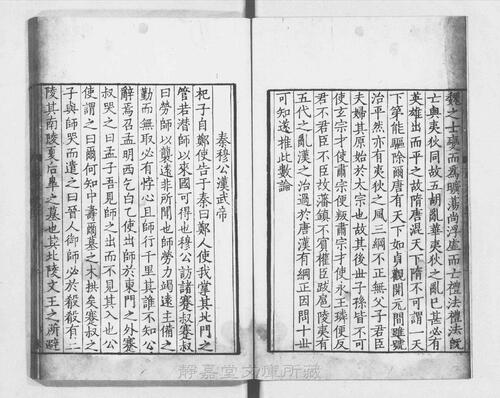 魏之士變而爲曠蕩尚浮虛而亡禮法禮法既
亡與夷狄同故五胡亂華夷狄之亂已甚必有
英雄出而平之故隋唐混天下隋不可謂一天
下第能驅除爾唐有天下如貞觀開元間雖號
治平然亦有夷狄之風三綱不正無父子君臣
夫婦其原始於太宗也故其後世子孫皆不可
使玄宗才使肅宗便叛肅宗才使永王璘便反
君不君臣不臣故藩鎭不賓權臣跋扈陵夷有
五代之亂漢之治過於唐漢有綱正因問十世
可知遂推此數論
秦穆公漢武帝
杞子自鄭使告于秦曰鄭人使我掌其北門之
管若潛師以來國可得也穆公訪諸蹇叔蹇叔
曰勞師以襲遠非所聞也師勞力竭遠主備之
勤而無取必有悖心且師行千里其誰不知公
辭焉召孟明西乞白乙使出師於東門之外蹇
叔哭之曰孟子吾見師之出而不見其入也公
使謂之曰爾何知中壽爾墓之木拱矣蹇叔之
子與師哭而遣之曰晉人御師必於殽殽有二
陵其南陵夏后皋之墓也其北陵文王之所避
静嘉堂文庫所藏